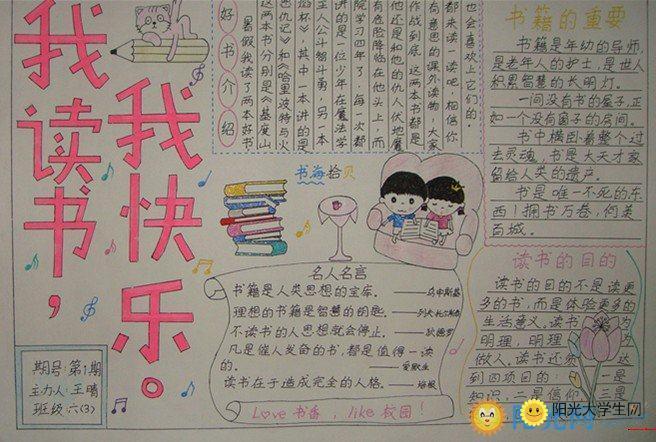 我读书，
我快乐。
好书介绍
暑假我读了两本好书
这两本书分别是《基度山
恩仇记》和《哈里波特与火
焰杯》，其中一本讲的是
主人公斗智斗勇，另一本
讲的是一位少年在魔法学
院学习四年了，每一次都
有危险降临在他头上，而
他还是和他的仇人伏地魔
作战到底。这两本书都是
有意思的课外读物，大家
都来读一读吧，相信你
也会喜欢上它们的。
书籍的重要
书籍是年幼的导师，
是老年人的护士，是世人
积累智慧的长明灯。
一间没有书的屋子，正
如一个没有窗子的房间。
书中横卧着整个过
去灵魂，书是大天才家
留给人类的遗产。
书是唯一不死的东
西！拥书万卷，何英
百城。
书海拾贝
名人名言
书籍是人类思想的宝库。——乌申斯基
理想的书籍是智慧的钥匙。——列夫·托尔斯泰
不读书的人思想就会停止。——狄德罗
凡是催人发奋的书，都是值得一读
的。——爱默生
读书在于造成完全的人格。——培根
Love 书香，like 校园！
读书的目的
读书的目的不是读更
多的书，而是体验更多的
生活意义。读书 为
明理，明理 为
做人。读书还 达
到四项目的： 一是
知识，二是信仰，三是
期号：第1期
主力人：王晴
班级：六(3)
阳光大学生网